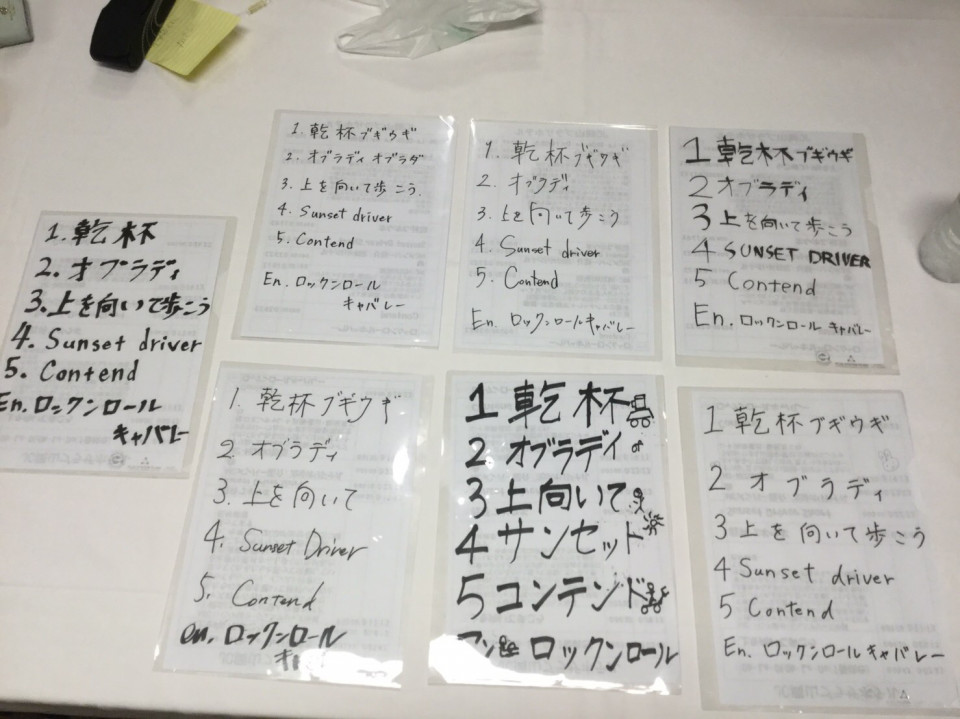 1. 乾杯ブギウギ
2. オブラディ オブラダ
3. 上を向いて歩こう.
4. Sunset driver
5. Contend
En. ロックンロール
キャバレー
1. 乾杯ブギウギ
2. オブラディ
3. 上を向いて歩こう
4. Sunset driver
5. Contend
En. ロックンロールキャバレー
1 乾杯ブギウギ
2 オブラディ
3 上を向いて歩こう
4 SUNSET DRIVER
5 Contend
En. ロックンロール キャバレー
1. 乾杯
2. オブラディ
3. 上を向いて歩こう
4. Sunset driver
5. Contend
En. ロックンロール
キャバレー
1. 乾杯ブギウギ
2 オブラディ
3. 上を向いて
4. Sunset Driver
5. Contend
en. ロックンロール
1 乾杯
2 オブラディ
3 上向いて
4 サンセット
5 コンテンド
アン ロックンロール
1 乾杯ブギウギ
2 オブラディ
3 上を向いて歩こう
4 Sunset driver
5 Contend
En. ロックンロールキャバレー